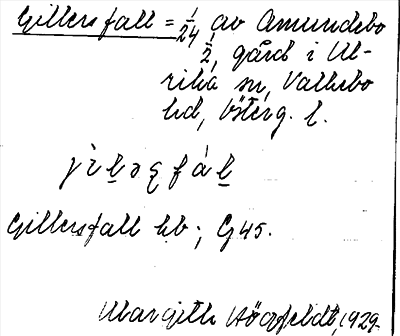 Gillersfall = 1/24 av Amundebo
1/2, gård i Ul-
rika sn, Valkebo
hd, Österg. l.
Gillersfall hb; G45.
Margith Högfeldt, 1929.